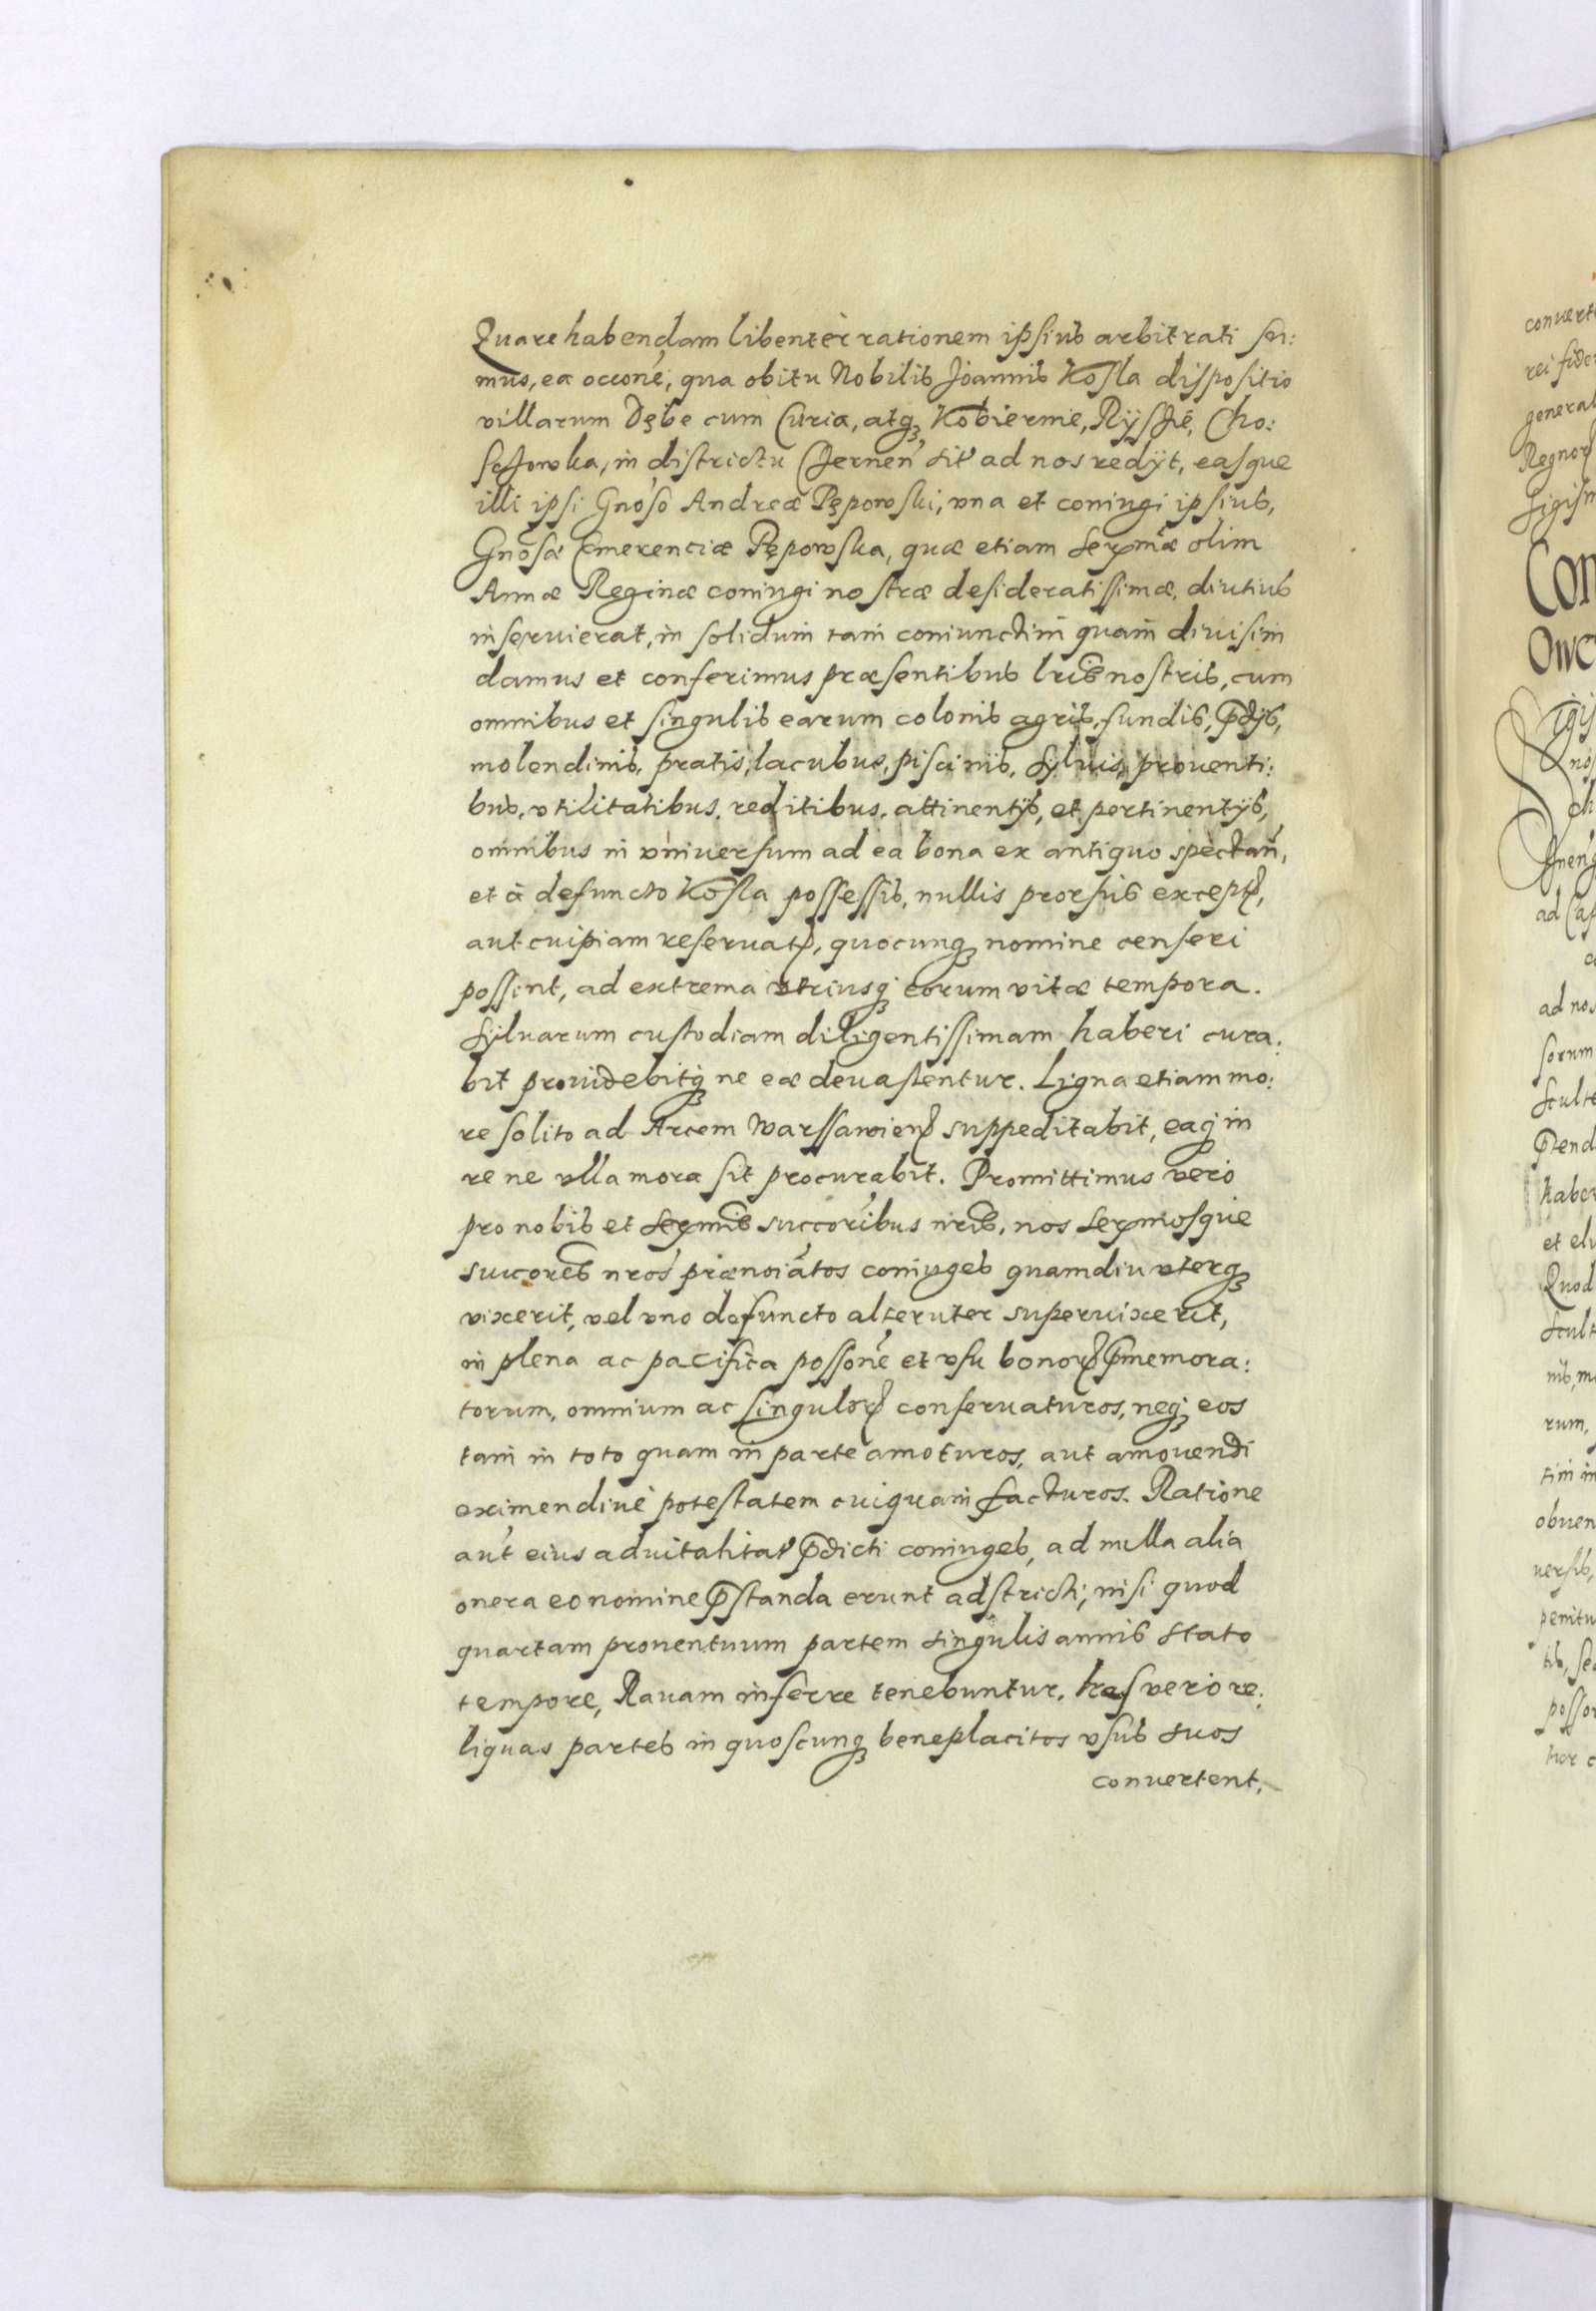 Quare habendam libentèr rationem ipsius arbitrati su:
mus, ea occoné, qua obitu Nobilis Joannis Kosla dispositio
villarum Dębe cum Curia, atq₃ Kobiernie, Ryszé, Cho:
szczowka, in districtu Czernen̄ sit' ad nos redijt, easque
illi ipsi Gnoso Andreæ Pępowski, vna et coniugi ipsius,
Gnosæ Emerenciæ Pępowska, quæ etiam Serxmæ olim
Annæ Reginæ coniugi nostræ desideratissimæ, diutius
inseruierat, in solidum tam coniunctim quam diuisim
damus et conferimus præsentibus lris nostris, cum
omnibus et singulis earum colonis agris, fundis, p̄dijs,
molendinis, pratis, lacubus, piscinis, syluis, prouenti:
bus, vtilitatibus, reditibus, attinentijs, et pertinentijs,
omnibus in vniuersum ad ea bona ex antiquo spectan̄,
et à defuncto Kosla possessis, nullis prorsus except̄,
aut cuipiam reseruat̄, quocunq₃ nomine censeri
possint, ad extrema vtriusq₃ eorum vitæ tempora.
Syluarum custodiam diligentissimam haberi cura:
bit prouidebitq₃ ne eæ deuastentur. Ligna etiam mo:
re solito ad Arcem Warssawien̄ suppeditabit, eaq₃ in
re ne vlla mora sit procurabit. Promittimus vero
pro nobis et Serxmis succoribus nris, nos Serxmosque
succores nros prænoiatos coniuges quamdiu vterq₃
vixerit, vel vno defuncto alteruter superuixerit,
in plena ac pacifica possoné et vsu bonor̄ p̄memora:
torum, omnium ac singulor̄ conseruaturos, neq₃ eos
tam in toto quam in parte amoturos, aut amouendi
eximendiuè potestatem cuiquam facturos. Ratione
aut eius aduitalitat' p̄dicti coniuges, ad nulla alia
onera eo nomine p̄standa erunt adstricti, nisi quod
quartam prouentuum partem singulis annis stato
tempore, Rauam inferre tenebuntur. Tres vero re:
liquas partes in quoscunq₃ beneplacitos vsus suos
convertent,